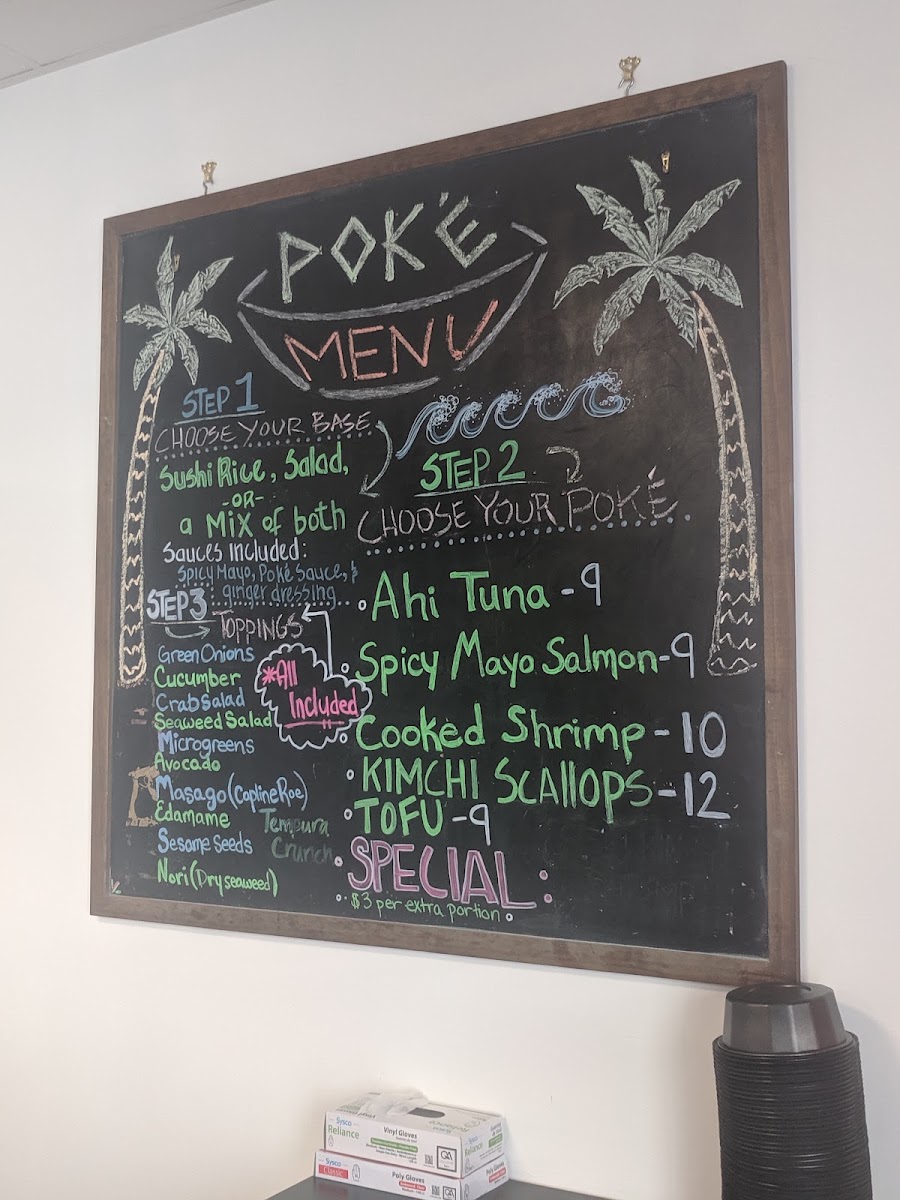 POKÉ
MENU
STEP 1
CHOOSE YOUR BASE
Sushi Rice, Salad,
-OR-
a Mix of both
Sauces included:
Spicy Mayo, Poké Sauce, &
ginger dressing
STEP 2
CHOOSE YOUR POKÉ
Ahi Tuna - 9
Spicy Mayo Salmon - 9
Cooked Shrimp - 10
KIMCHI SCAllOPS - 12
TOFU - 9
SPECIAL:
$3 per extra portion
STEP 3
TOPPINGS
*All
Included
Green Onions
Cucumber
Crab Salad
Seaweed Salad
Microgreens
Avocado
Masago (Capline Roe)
Edamame
Tempura
Crunch
Sesame Seeds
Nori (Dry seaweed)
Sysco
Reliance
Vinyl Gloves
Sysco
Classic
Poly Gloves
QA